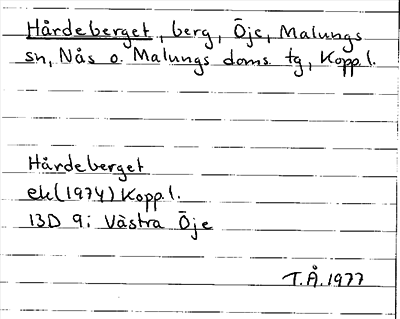 Hårdeberget, berg, Öje, Malungs
sn, Nås o. Malungs doms. tg, Kopp.l.
Hårdeberget
ek(1974) Kopp.l.
13D 9i Västra Öje
T.Å.1977